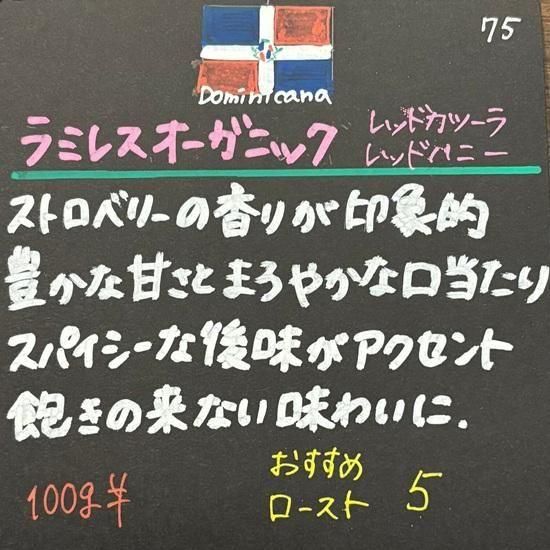 75
Dominicana
ラミレスオーガニック
レッドカツーラ
レッドハニー
ストロベリーの香りが印象的
豊かな甘さとまろやかな口当たり
スパイシーな後味がアクセント
飽きの来ない味わいに.
おすすめ
ロースト 5
100g¥